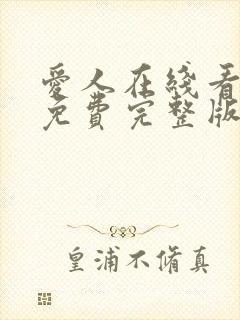 爱人在线看
免费完整版
皇浦不脩真